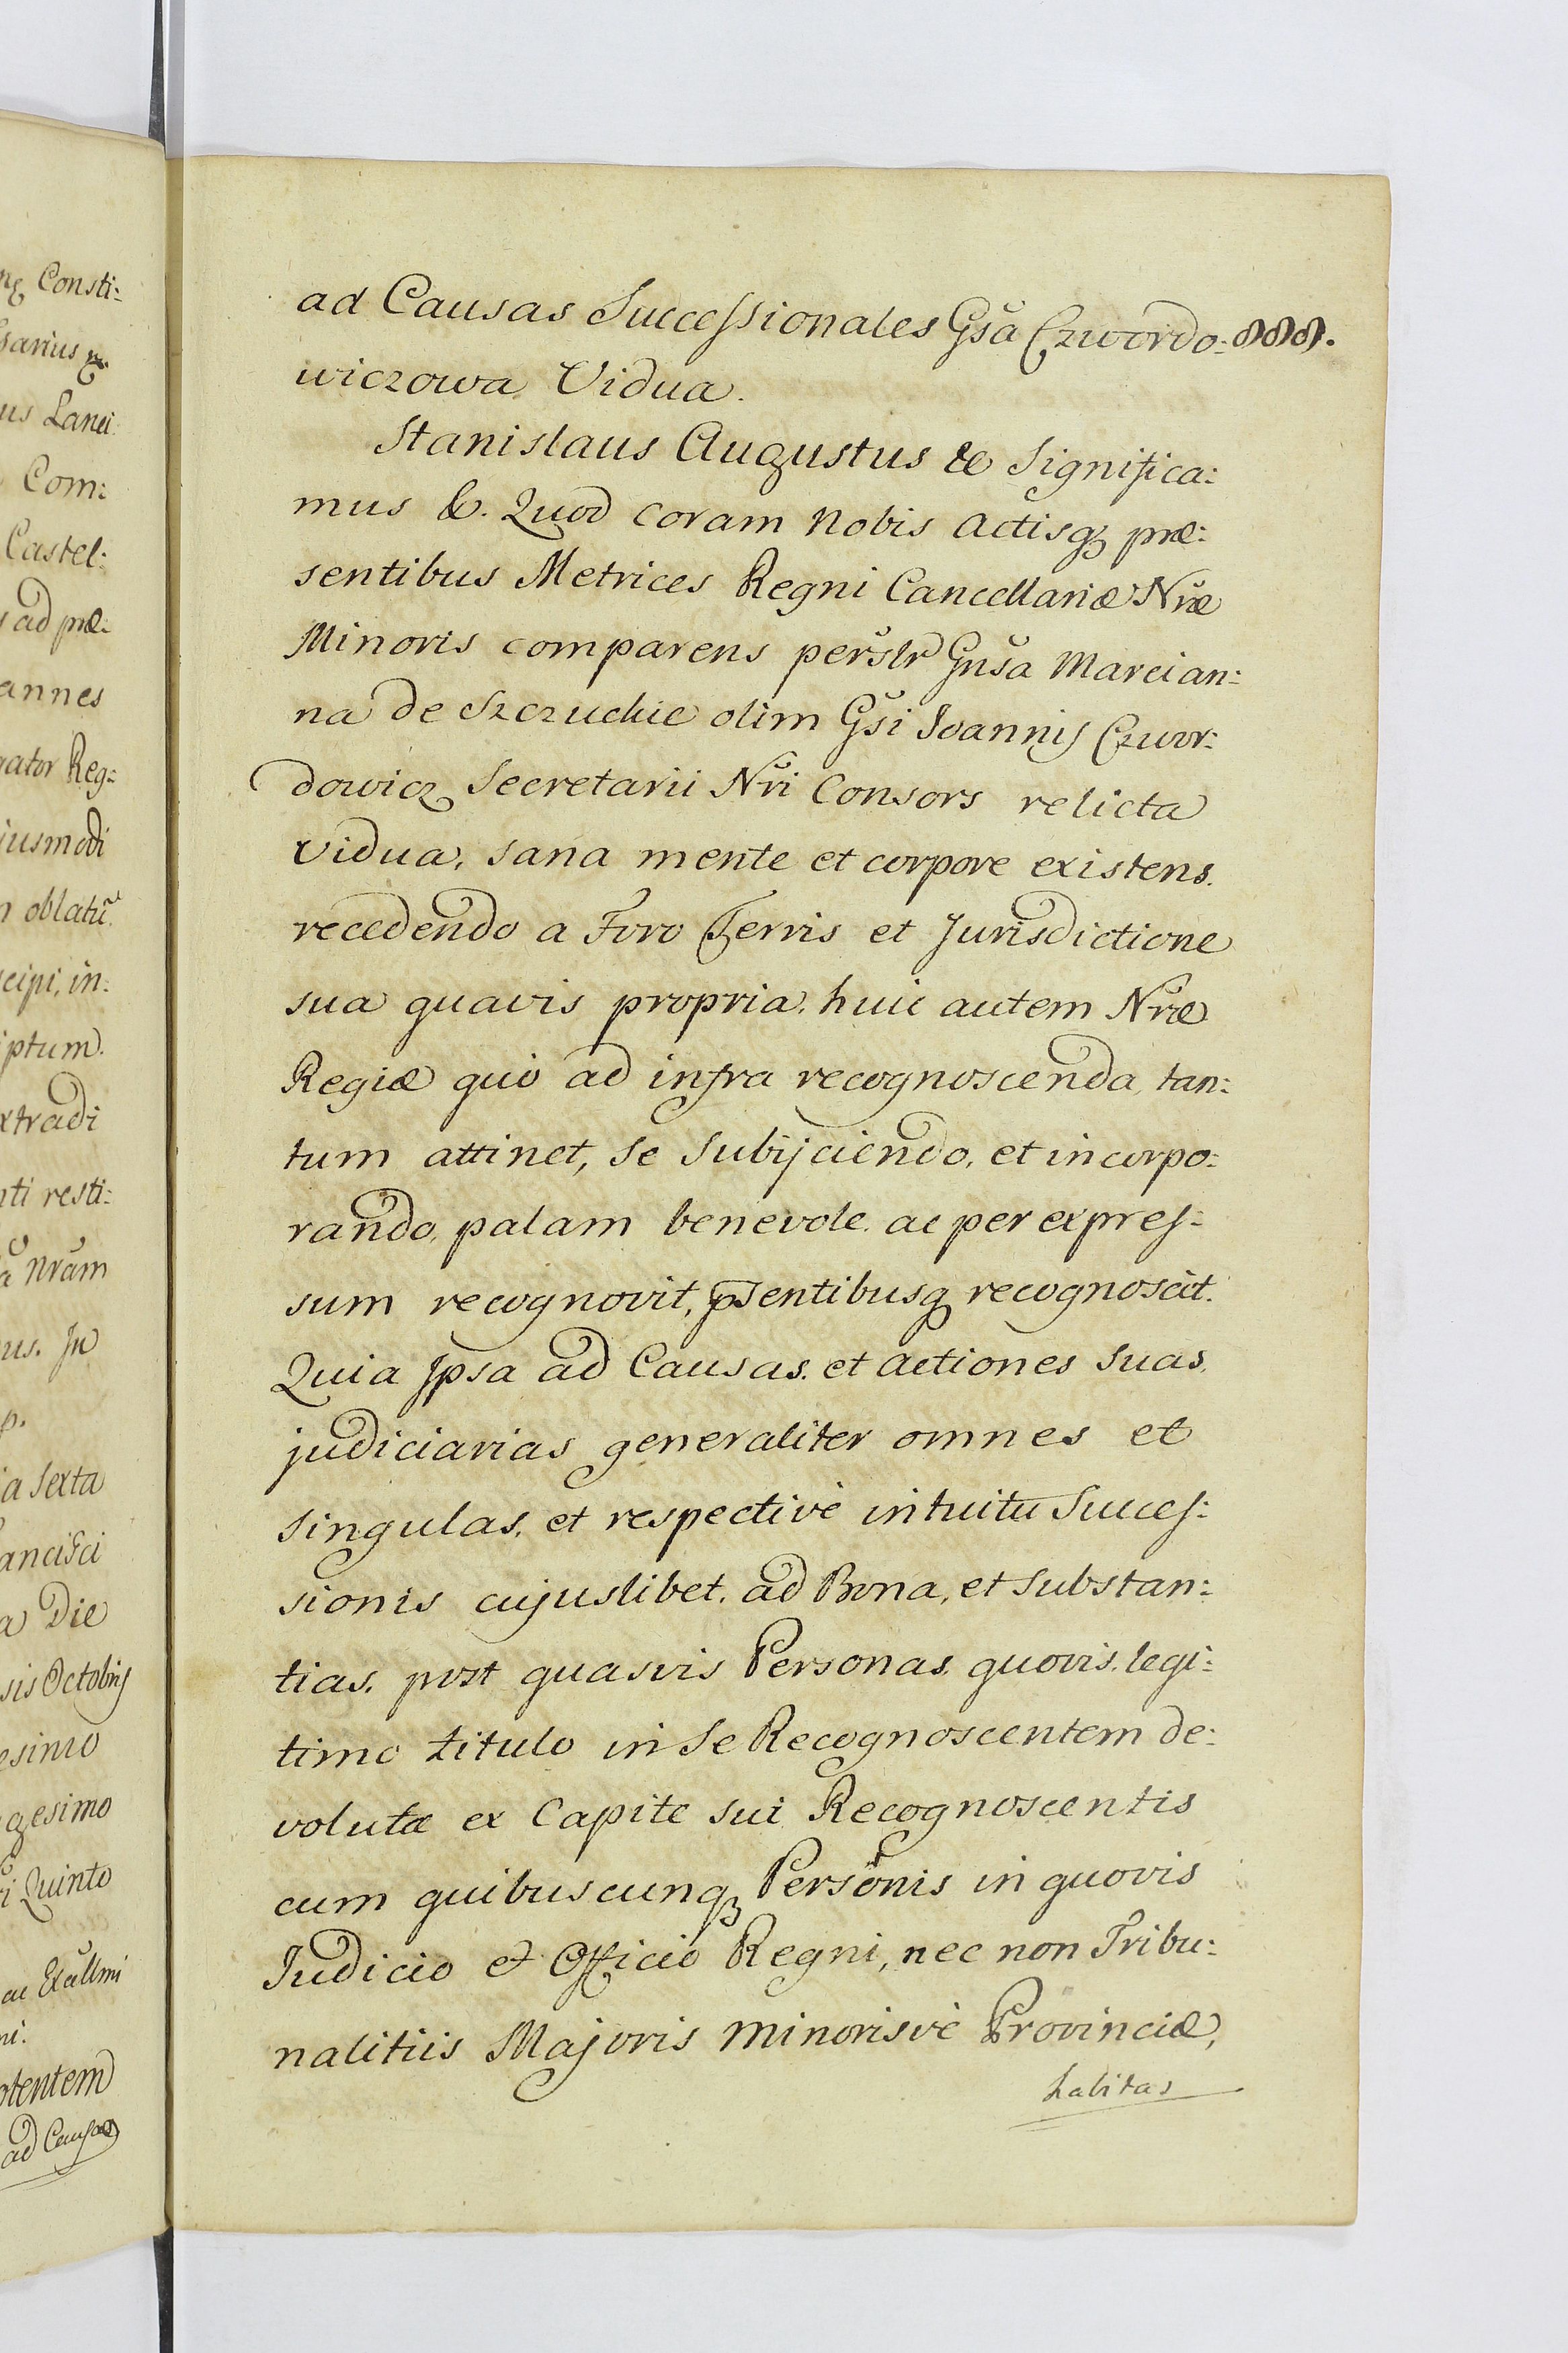 nq Consti:
sarius
us Lanci
Com:
Castel:
ad præ:
annes
gator Reg:
jusmodi
oblatũ
cipi, in:
iptum.
xtradi
nti resti:
ã Nrãm
us. In
p.
ia Sexta
ancisci
a Die
sis Octobris
esimo
gesimo
ri Quinto
ac Excellmi
ni.
otentem
ad Causas
ad Causas Successionales Gsã Czwordo: 888.
wiczowa Vidua.
Stanislaus Augustus &c Significa:
mus &c. Quod coram Nobis Actisq præ:
sentibus Metrices Regni Cancellariæ Nræ
Minoris comparens perslr Gnsa Marcian:
na de Szczuckie olim Gsi Joannis Czwor:
dowicz Secretarii Nri Consors relicta
Vidua, sana mente et corpore existens.
recedendo a Foro Terris et Jurisdictione
sua quavis propria, huic autem Nræ
Regiæ quò ad infra recognoscenda, tan:
tum attinet, se Subijciendo, et incorpo:
rando, palam benevole, ac per expres:
sum recognovit, psentibusq recognoscit.
Quia Ipsa ad Causas, et actiones suas,
judiciarias generaliter omnes et
singulas, et respectivè intuitu Succes:
sionis cujuslibet, ad Bona, et Substan:
tias, post quasvis Personas, quovis legi:
timo titulo in Se Recognoscentem de:
volutæ ex Capite sui Recognoscentis
cum quibuscunq Personis in quovis
Judicio et Officio Regni, nec non Tribu:
nalitiis Majoris Minorisvè Provinciæ,
habitas